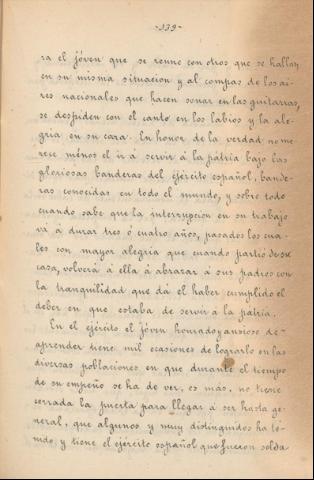 -139-
ra el jóven que se reune con otros que se hallan
en su misma situacion y al compas de los ai-
res nacionales que hacen sonar en las guitarras,
se despiden con el canto en los labios y la ale-
gria en su cara. En honor de la verdad no me-
rece ménos el ir á servir á la pátria bajo las
gloriosas banderas del ejército español, bande-
ras conocidas en todo el mundo, y sobre todo
cuando sabe que la interrupcion en su trabajo
vá á durar tres ó cuatro años, pasados los cua-
les con mayor alegria que cuando partió de su
casa, volverá á ella á abrazar á sus padres con
la tranquilidad que dá el haber cumplido el
deber en que estaba de servir á la pátria.
En el ejército el jóven honrado y ansioso de
aprender tiene mil ocasiones de lograrlo en las
diversas poblaciones en que durante el tiempo
de su empeño se ha de ver, es mas, no tiene
cerrada la puerta para llegar á ser hasta ge-
neral, que algunos y muy distinguidos ha te-
nido y tiene el ejército español que fueron solda-